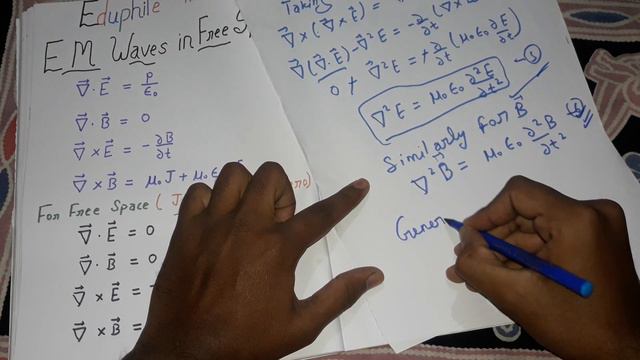 Eduphile
EM Waves in Free
∇⃗·E⃗ = ρ/ε₀
∇⃗·B⃗ = 0
∇⃗×E⃗ = -∂B/∂t
∇⃗×B⃗ = μ₀J + μ₀ε
For Free Space ( J
∇⃗·E⃗ = 0
∇⃗·B⃗ = 0
∇⃗×E⃗ =
∇⃗×B⃗ =
Taking
∇⃗×(∇⃗×E⃗) =
∇⃗(∇⃗·E⃗)-∇²E = -∂/∂t(∇×
0 + ∇²E = + ∂/∂t(μ₀ε₀ ∂E/∂t)
∇²E = μ₀ε₀ ∂²E/∂t²
Similarly for B⃗
∇²B⃗ = μ₀ε₀ ∂²B/∂t²
Gener